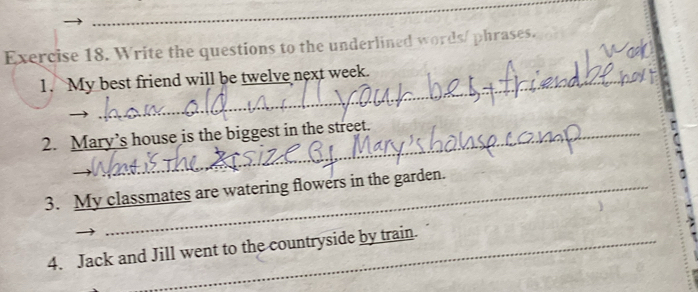 Exercise 18. Write the questions to the underlined words/ phrases.
1. My best friend will be twelve next week.
week
→ how old will your best friend be next
2. Mary's house is the biggest in the street.
→ What is the size of Mary's house comp
3. My classmates are watering flowers in the garden.
→
4. Jack and Jill went to the countryside by train.